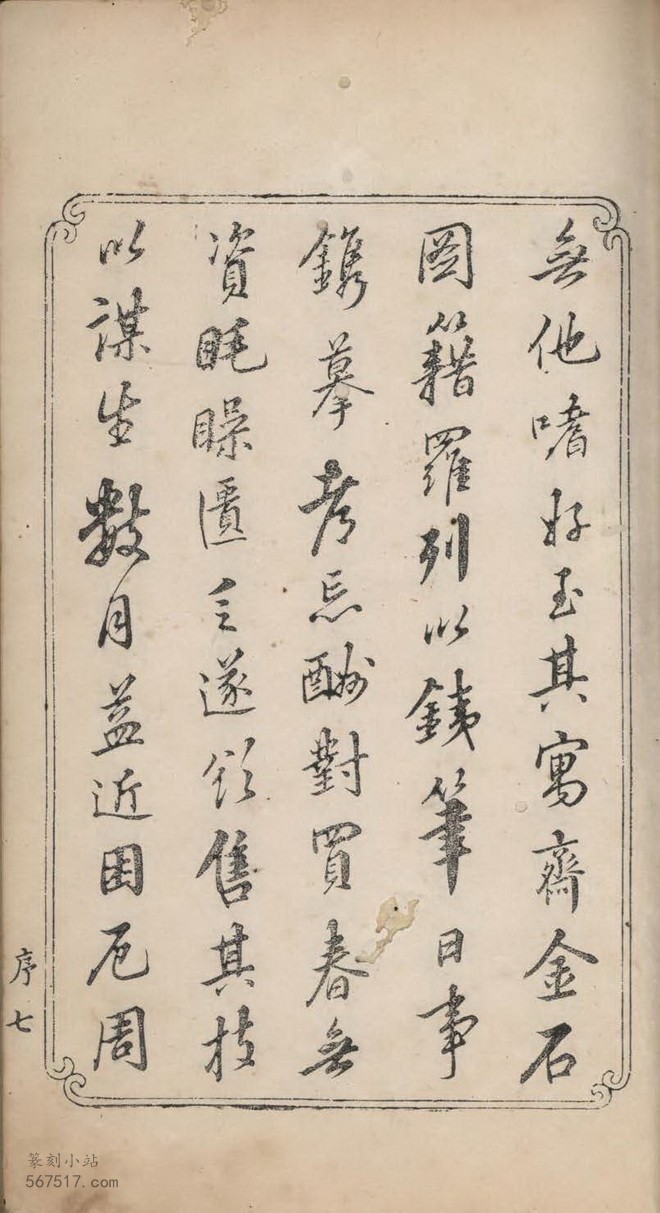 無他嗜好至其寓齋金石
圖籍羅列以銕筆日事
鐫摹考忘酬對買春無
資眊矂匱乏遂欲售其技
以謀生數月益近困厄周
序七
篆刻小站
567517.com